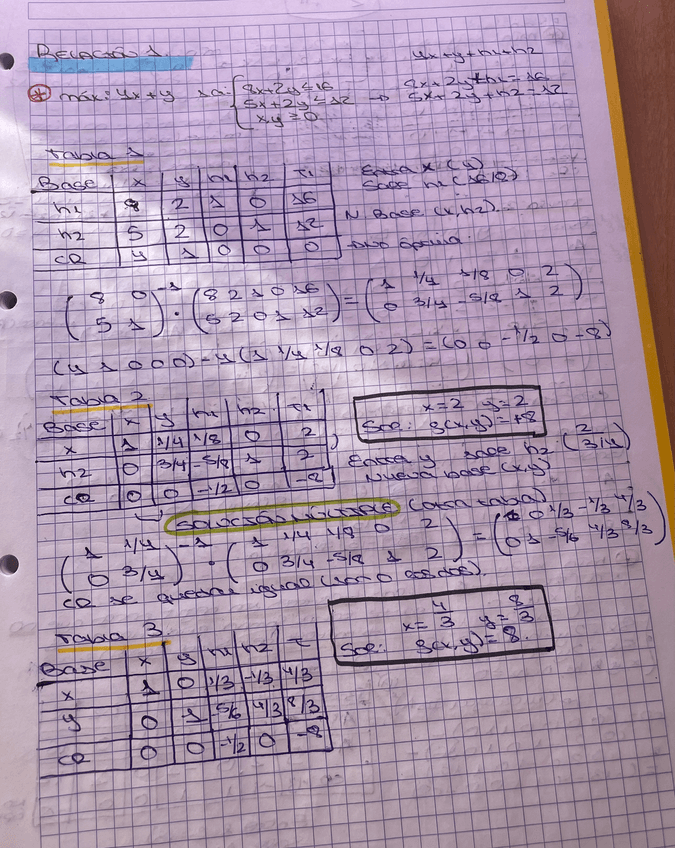 Relación 1.
4x+y+h1+h2
* máx: 4x+y s.a: { 8x+2y≤16 → 8x+2y+h1=16
5x+2y≤12 5x+2y+h2=12
xy≥0
Tabla 1
Base x y h1 h2 TI
h1 8 2 1 0 16
h2 5 2 0 1 12
CR 4 1 0 0 0
Entra x (4)
Sale h1 (16/8)
N Base (x,h2).
(8 0 / 5 1)^-1 · (8 2 1 0 16 / 5 2 0 1 12) = (1 1/4 1/8 0 2 / 0 3/4 -5/8 1 2)
(4 1 0 0 0) - 4(1 1/4 1/8 0 2) = (0 0 -1/2 0 -8)
Tabla 2
Base x y h1 h2 TI
x 1 1/4 1/8 0 2
h2 0 3/4 -5/8 1 2
CR 0 0 -1/2 0 -8
x=2 y=2
Sol: g(x,y) = +8
Entra y sale h2 (2 / 3/4)
Nueva base (x,y)
↳ SOLUCIÓN MÚLTIPLE (otra tabla)
(1 1/4 / 0 3/4)^-1 · (1 1/4 1/8 0 2 / 0 3/4 -5/8 1 2) = (1 0 1/3 -1/3 4/3 / 0 1 -5/6 4/3 8/3)
CR se quedan igual (son 0 los dos).
Tabla 3
Base x y h1 h2 TI
x 1 0 1/3 -1/3 4/3
y 0 1 -5/6 4/3 8/3
CR 0 0 -1/2 0 -8
x=4/3 y=8/3
Sol: g(x,y) = 8.